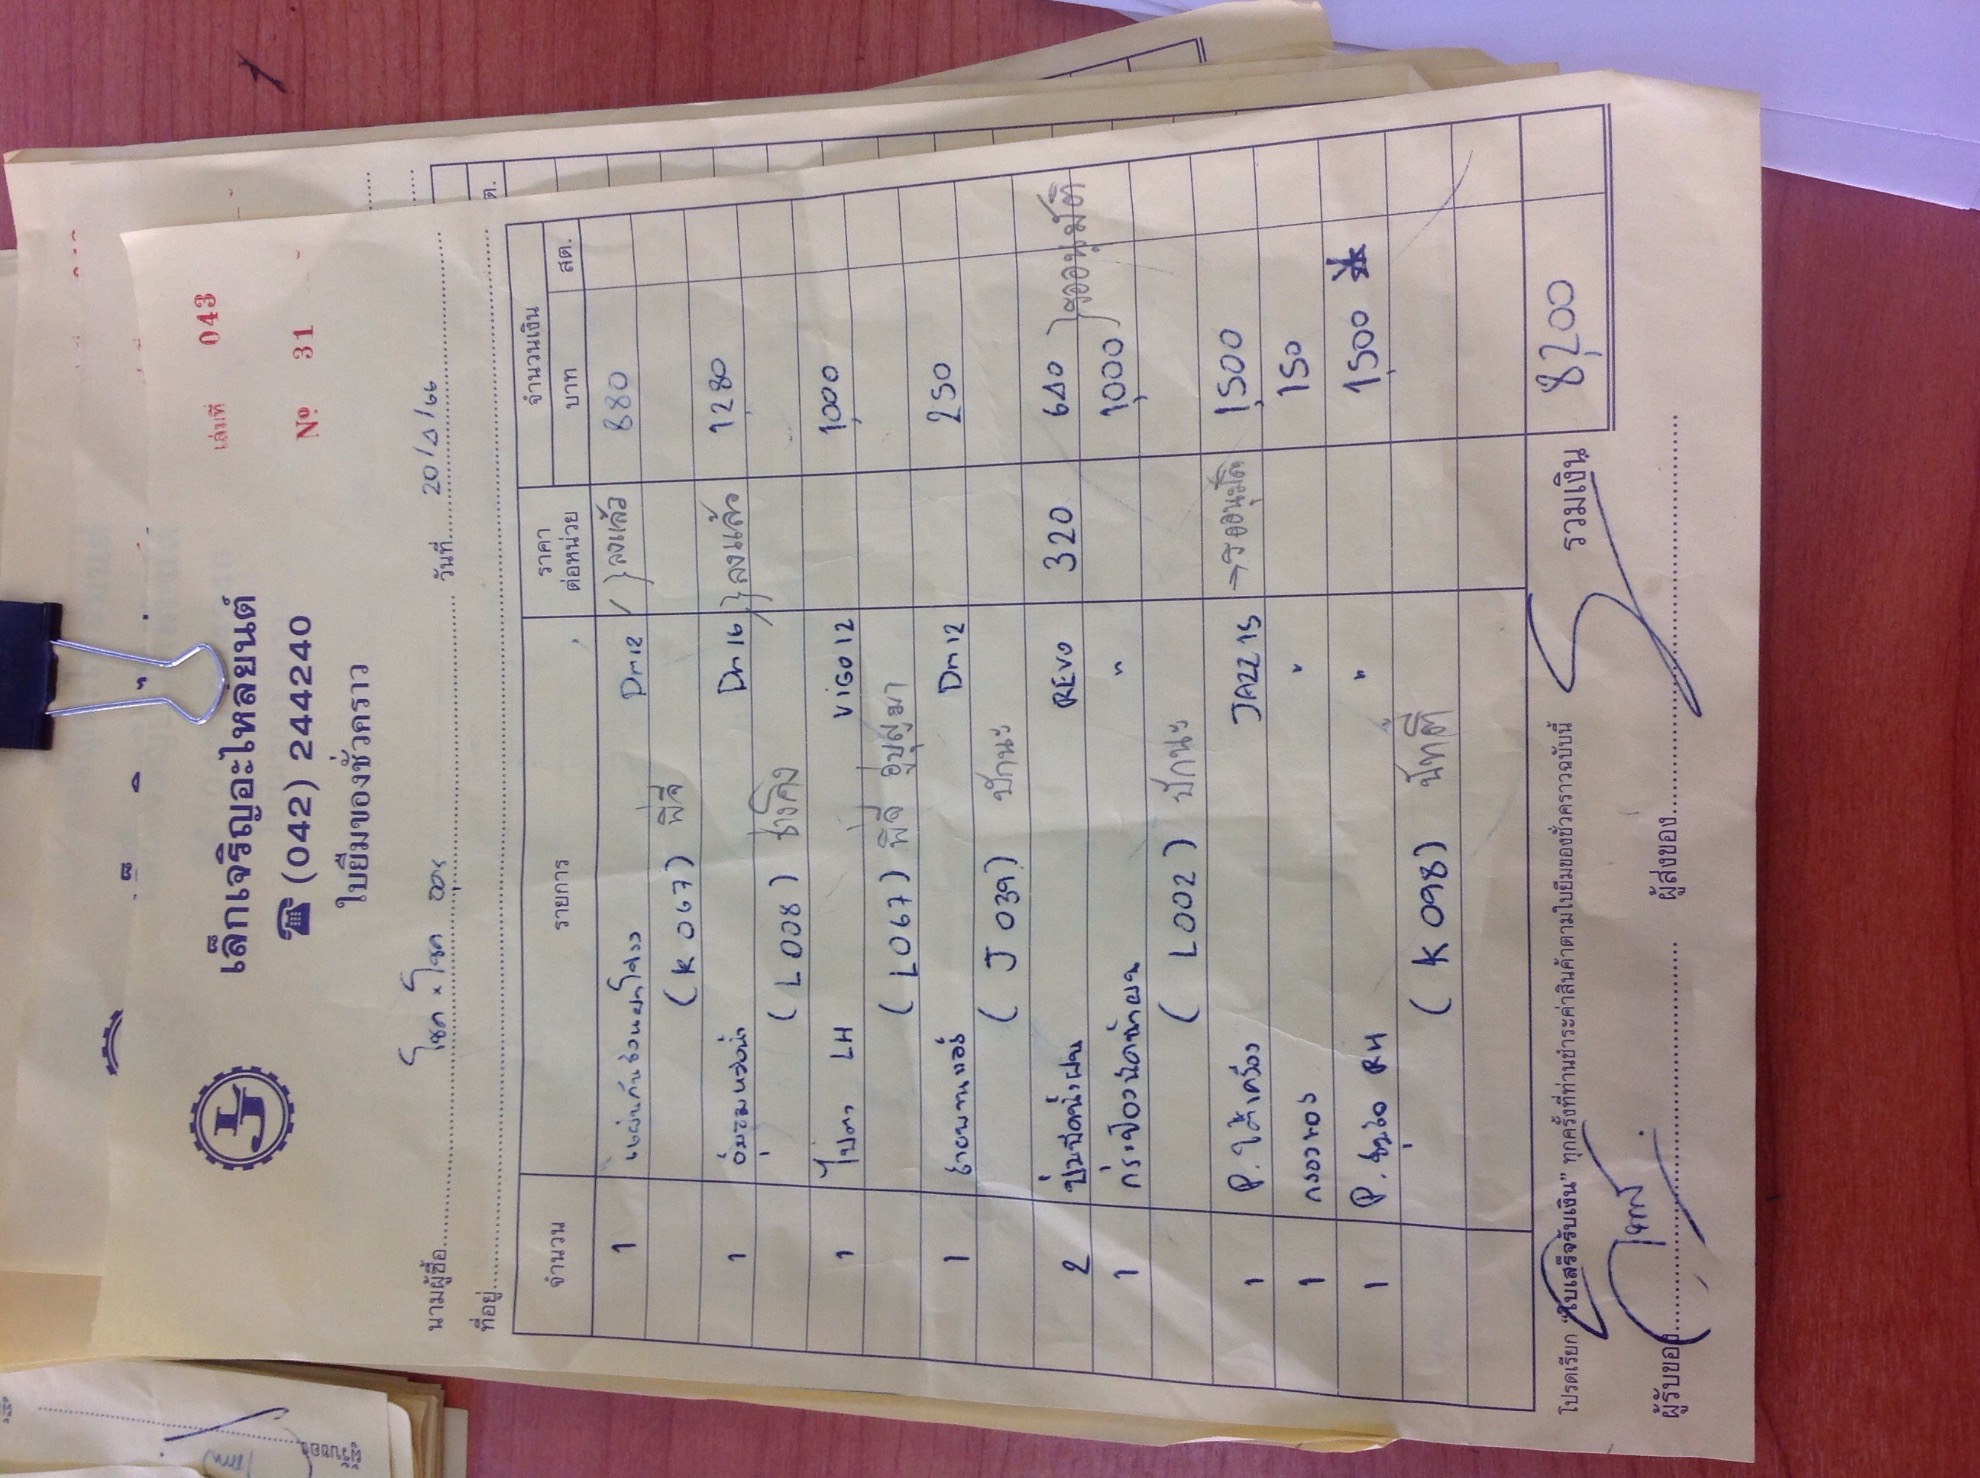 เล่มที่ 043
เล็กเจริญอะไหล่ยนต์
(042) 244240
Nº 31
ใบยืมของชั่วคราว
นามผู้ซื้อ โชค x โชค วันที่ 20/4/66
ที่อยู่
จำนวน รายการ ราคาต่อหน่วย จำนวนเงิน
บาท สต.
1 แผ่นกันชนหน้า Dm12 ลงแล้ว 880
(K 067) พี่จี
1 Dm 16 ลงแล้ว 1280
(L008) ช่างโด่ง
1 ไฟตา LH VIGO 12 1,000
(L067) พี่จี
1 สายพานแอร์ Dm 12 250
(J 039) บักนะ
2 ปั๊มฉีดน้ำฝน REVO 320 640 รออนุมัติ
1 กระป๋องฉีดน้ำฝน " 1,000
(L002) บักนะ
1 P. ใต้เครื่อง JAZZ 15 → รออนุมัติ 1,500
1 " 150
1 P. ซุ้มล้อ RH " 1,500
(K 098) นัทตี้
รวมเงิน 8,200
โปรดเรียก "ใบเสร็จรับเงิน" ทุกครั้งที่ท่านชำระค่าสินค้าตามใบยืมของชั่วคราวฉบับนี้
ผู้รับของ ผู้ส่งของ